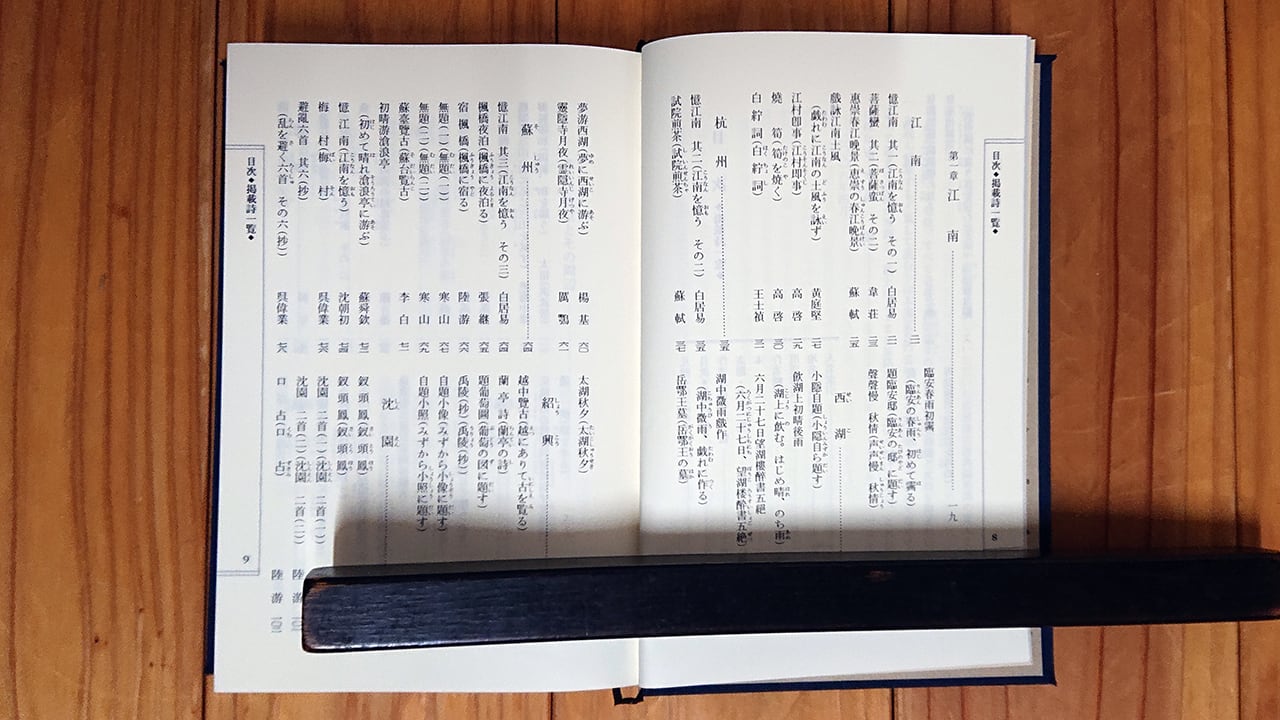 目次◆掲載詩一覧◆
8
第一章 江南 一九
江南 二一
憶江南 其一(江南を憶う その一) 白居易 二一
菩薩蠻 其二(菩薩蛮 その二) 韋荘 二三
惠崇春江晩景(恵崇の春江晩景) 蘇軾 二五
戲詠江南土風
(戯れに江南の土風を詠ず) 黄庭堅 二七
江村即事(江村即事) 高啓 二九
燒筍(筍を焼く) 高啓 三〇
白紵詞(白紵詞) 王士禛 三一
杭州 三五
憶江南 其二(江南を憶う その二) 白居易 三五
試院煎茶(試院煎茶) 蘇軾 三七
臨安春雨初霽
(臨安の春雨、初めて霽る)
題臨安邸(臨安の邸に題す)
聲聲慢 秋情(声声慢 秋情)
西湖
小隠自題(小隠自ら題す)
飲湖上初晴後雨
(湖上に飲む、はじめ晴、のち雨)
六月二十七日望湖樓醉書五絶
(六月二十七日、望湖楼醉書五絶)
湖中微雨戲作
(湖中微雨、戯れに作る)
岳鄂王墓(岳鄂王の墓)
夢游西湖(夢に西湖に游ぶ) 楊基 六〇
靈隠寺月夜(霊隠寺月夜) 厲鶚 六一
蘇州 六四
憶江南 其三(江南を憶う その三) 白居易 六四
楓橋夜泊(楓橋に夜泊る) 張継 六五
宿楓橋(楓橋に宿る) 陸游 六六
無題(一)(無題(一)) 寒山
無題(二)(無題(二)) 寒山 六九
蘇臺覽古(蘇台覧古) 李白 七一
初晴游滄浪亭
(初めて晴れ滄浪亭に游ぶ) 蘇舜欽 七三
憶江南(江南を憶う) 沈朝初 七四
梅村(梅村) 呉偉業 七六
避亂六首 其六(抄)
(乱を避く六首 その六(抄)) 呉偉業 七八
太湖秋夕(太湖秋夕)
紹興
越中覽古(越にありて古を覧る)
蘭亭詩(蘭亭の詩)
題葡萄圖(葡萄の図に題す)
禹陵(抄)(禹陵(抄))
自題小像(みずから小像に題す)
自題小照(みずから小照に題す)
沈園
釵頭鳳(釵頭鳳)
釵頭鳳(釵頭鳳)
沈園 二首(一)(沈園 二首(一))
沈園 二首(二)(沈園 二首(二)) 陸游
口占(口占) 陸游 一〇二
目次◆掲載詩一覧◆
9